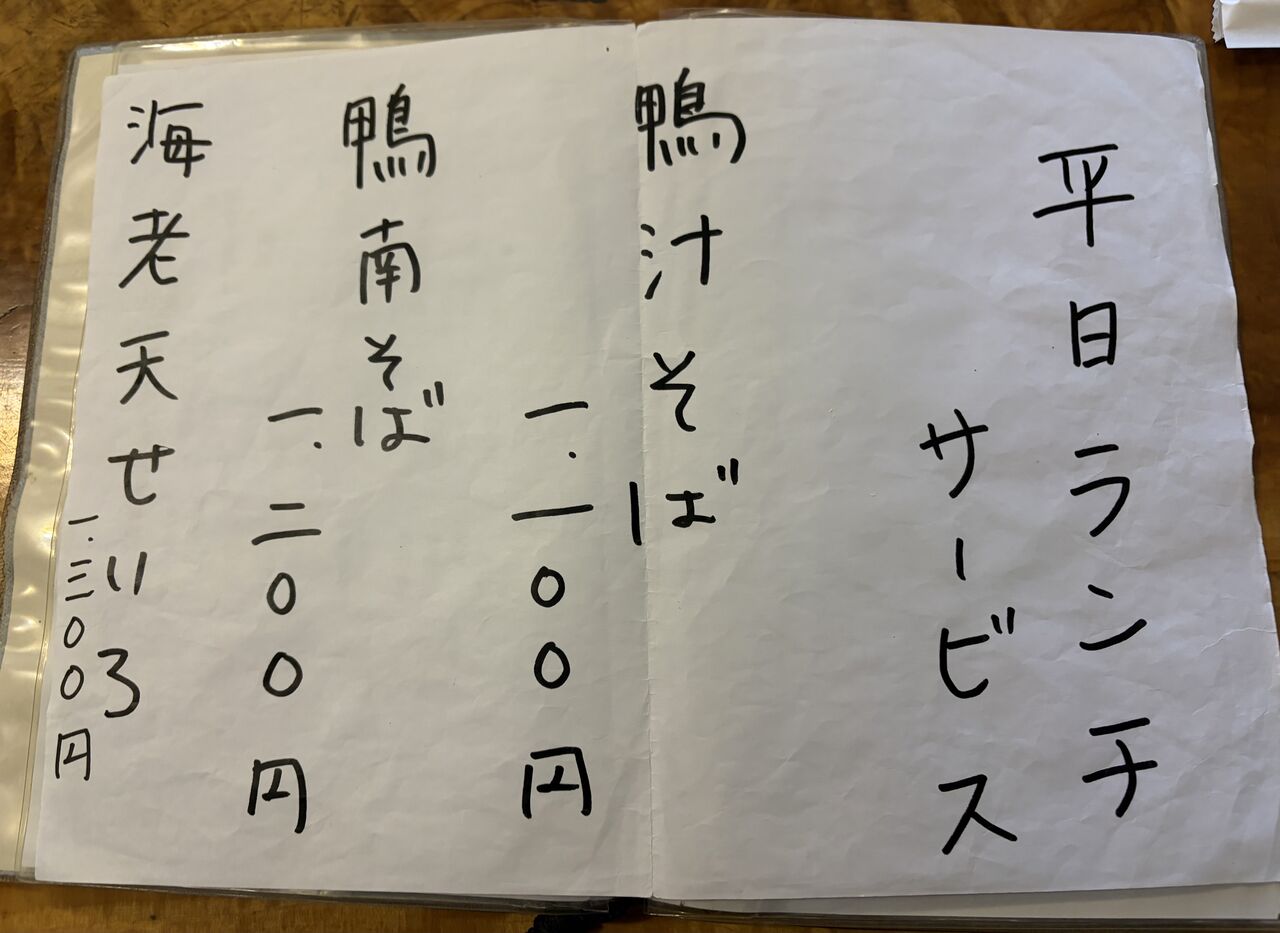 平日ランチ
サービス
鴨汁そば
一.一〇〇円
鴨南そば
一.二〇〇円
海老天せいろ
一.三〇〇円